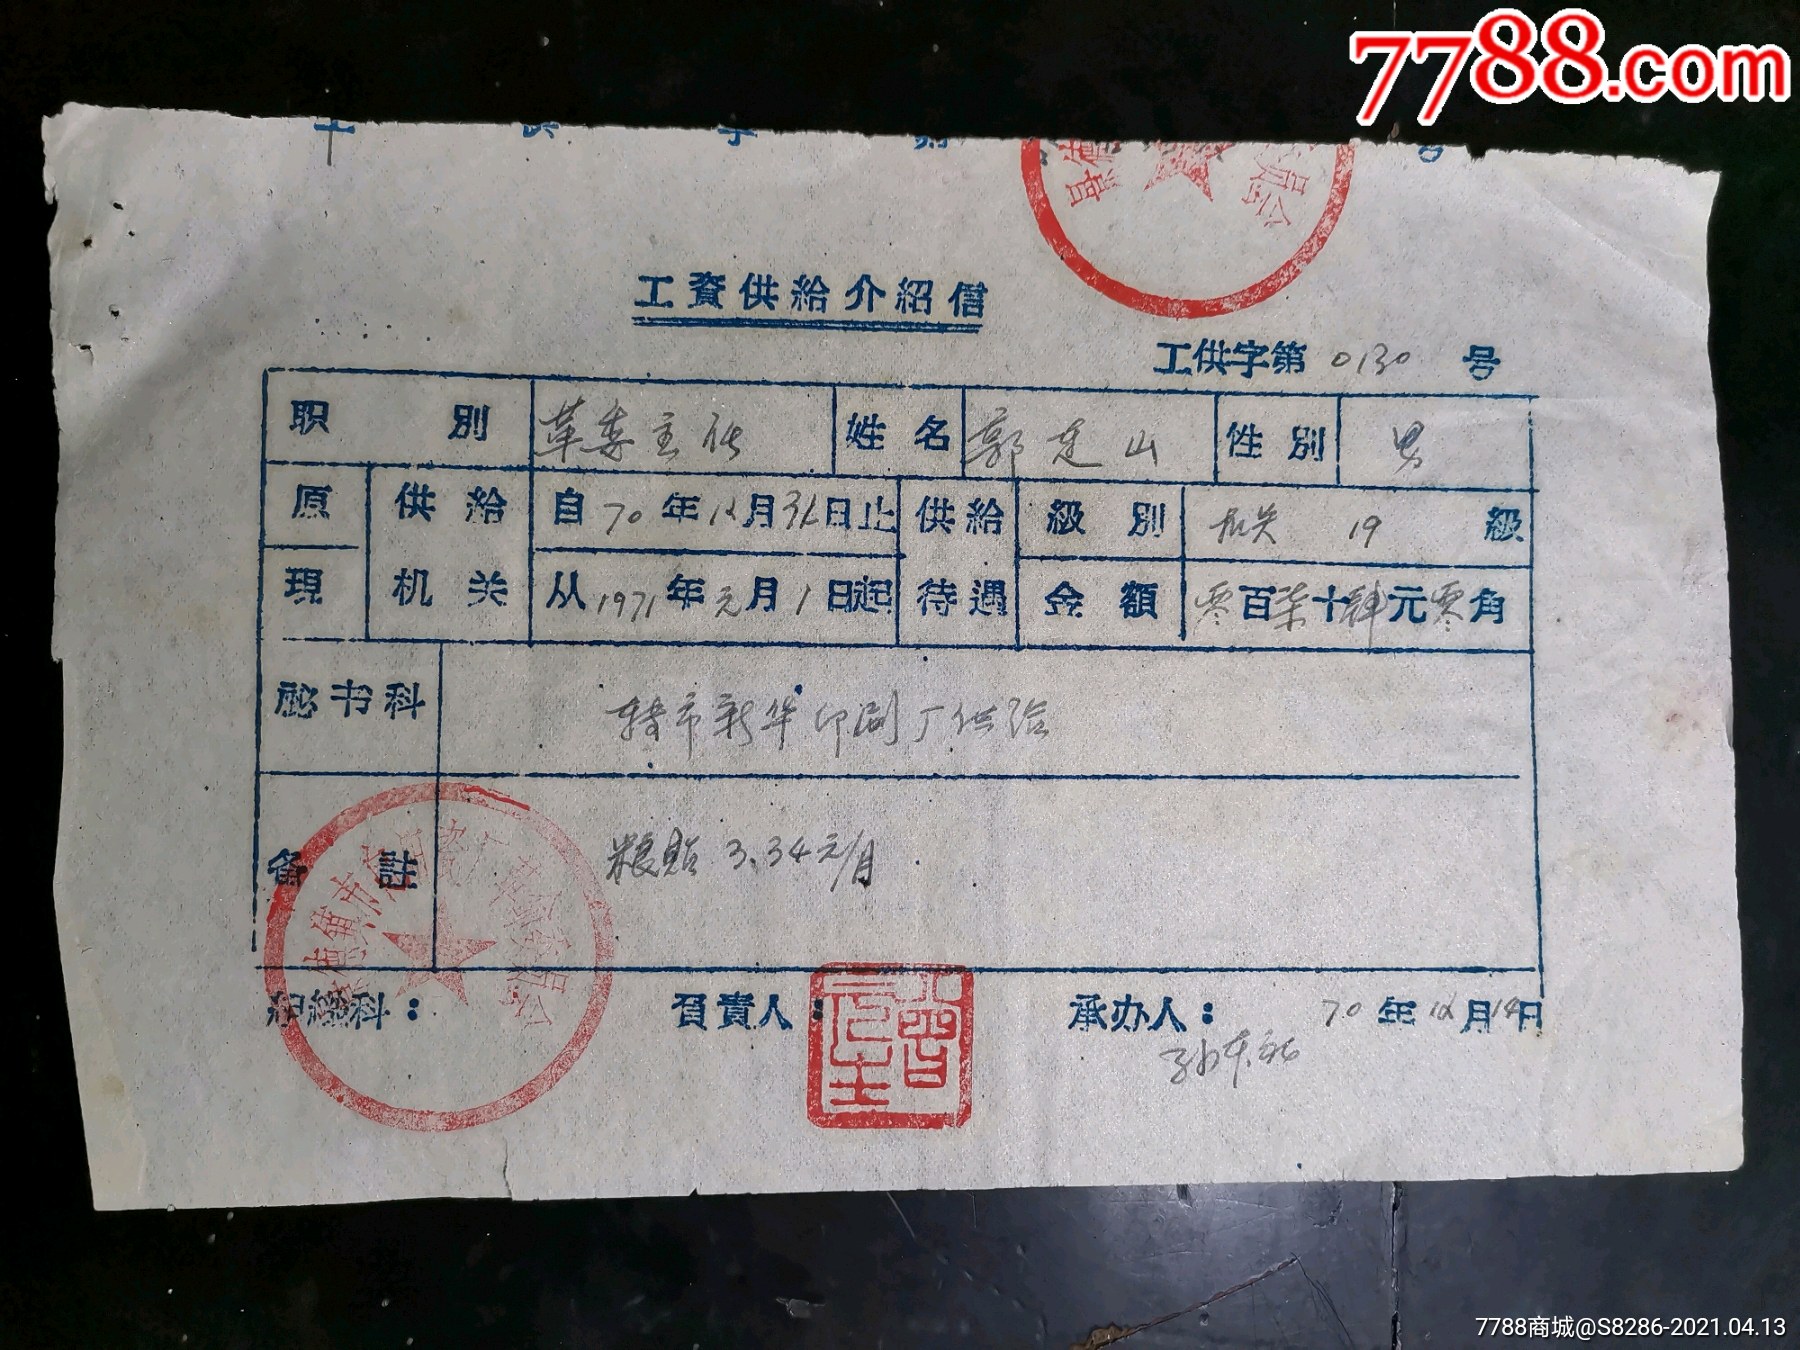 7788.com
工資供給介紹信
工供字第 0130 号
职 別 革委主任 姓名 郭连山 性別 男
原 供給 自 70 年 12 月 31 日止 供給 級別 机关 19 級
現 机关 从 1971 年 元 月 1 日起 待遇 金額 零 百 柒 十 肆 元 零 角
祕书科 转市新华印刷厂供给
备註 粮贴 3.34元/月
組經科： 負責人： 承办人： 70 年 12 月 14 日
7788商城@S8286-2021.04.13